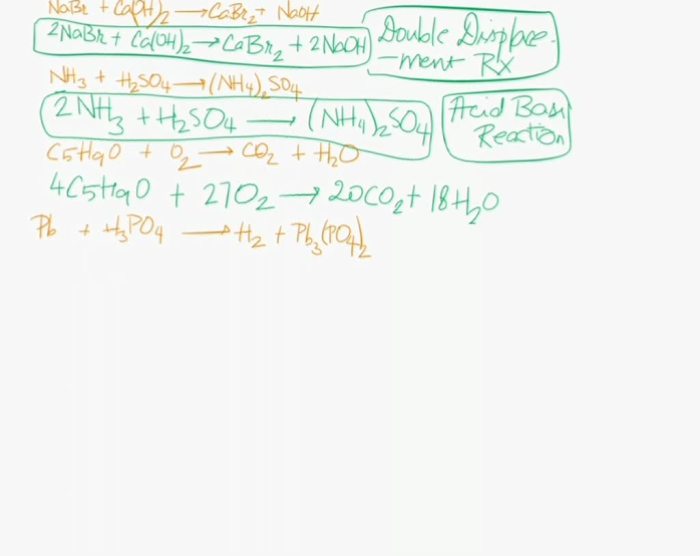 NaBr + Ca(OH)₂ → CaBr₂ + NaOH
2NaBr + Ca(OH)₂ → CaBr₂ + 2NaOH Double Displace-
-ment Rx
NH₃ + H₂SO₄ → (NH₄)₂SO₄
2NH₃ + H₂SO₄ → (NH₄)₂SO₄ Acid Base
Reaction
C5H9O + O₂ → CO₂ + H₂O
4C5H9O + 27O₂ → 20CO₂ + 18H₂O
Pb + H₃PO₄ → H₂ + Pb₃(PO₄)₂